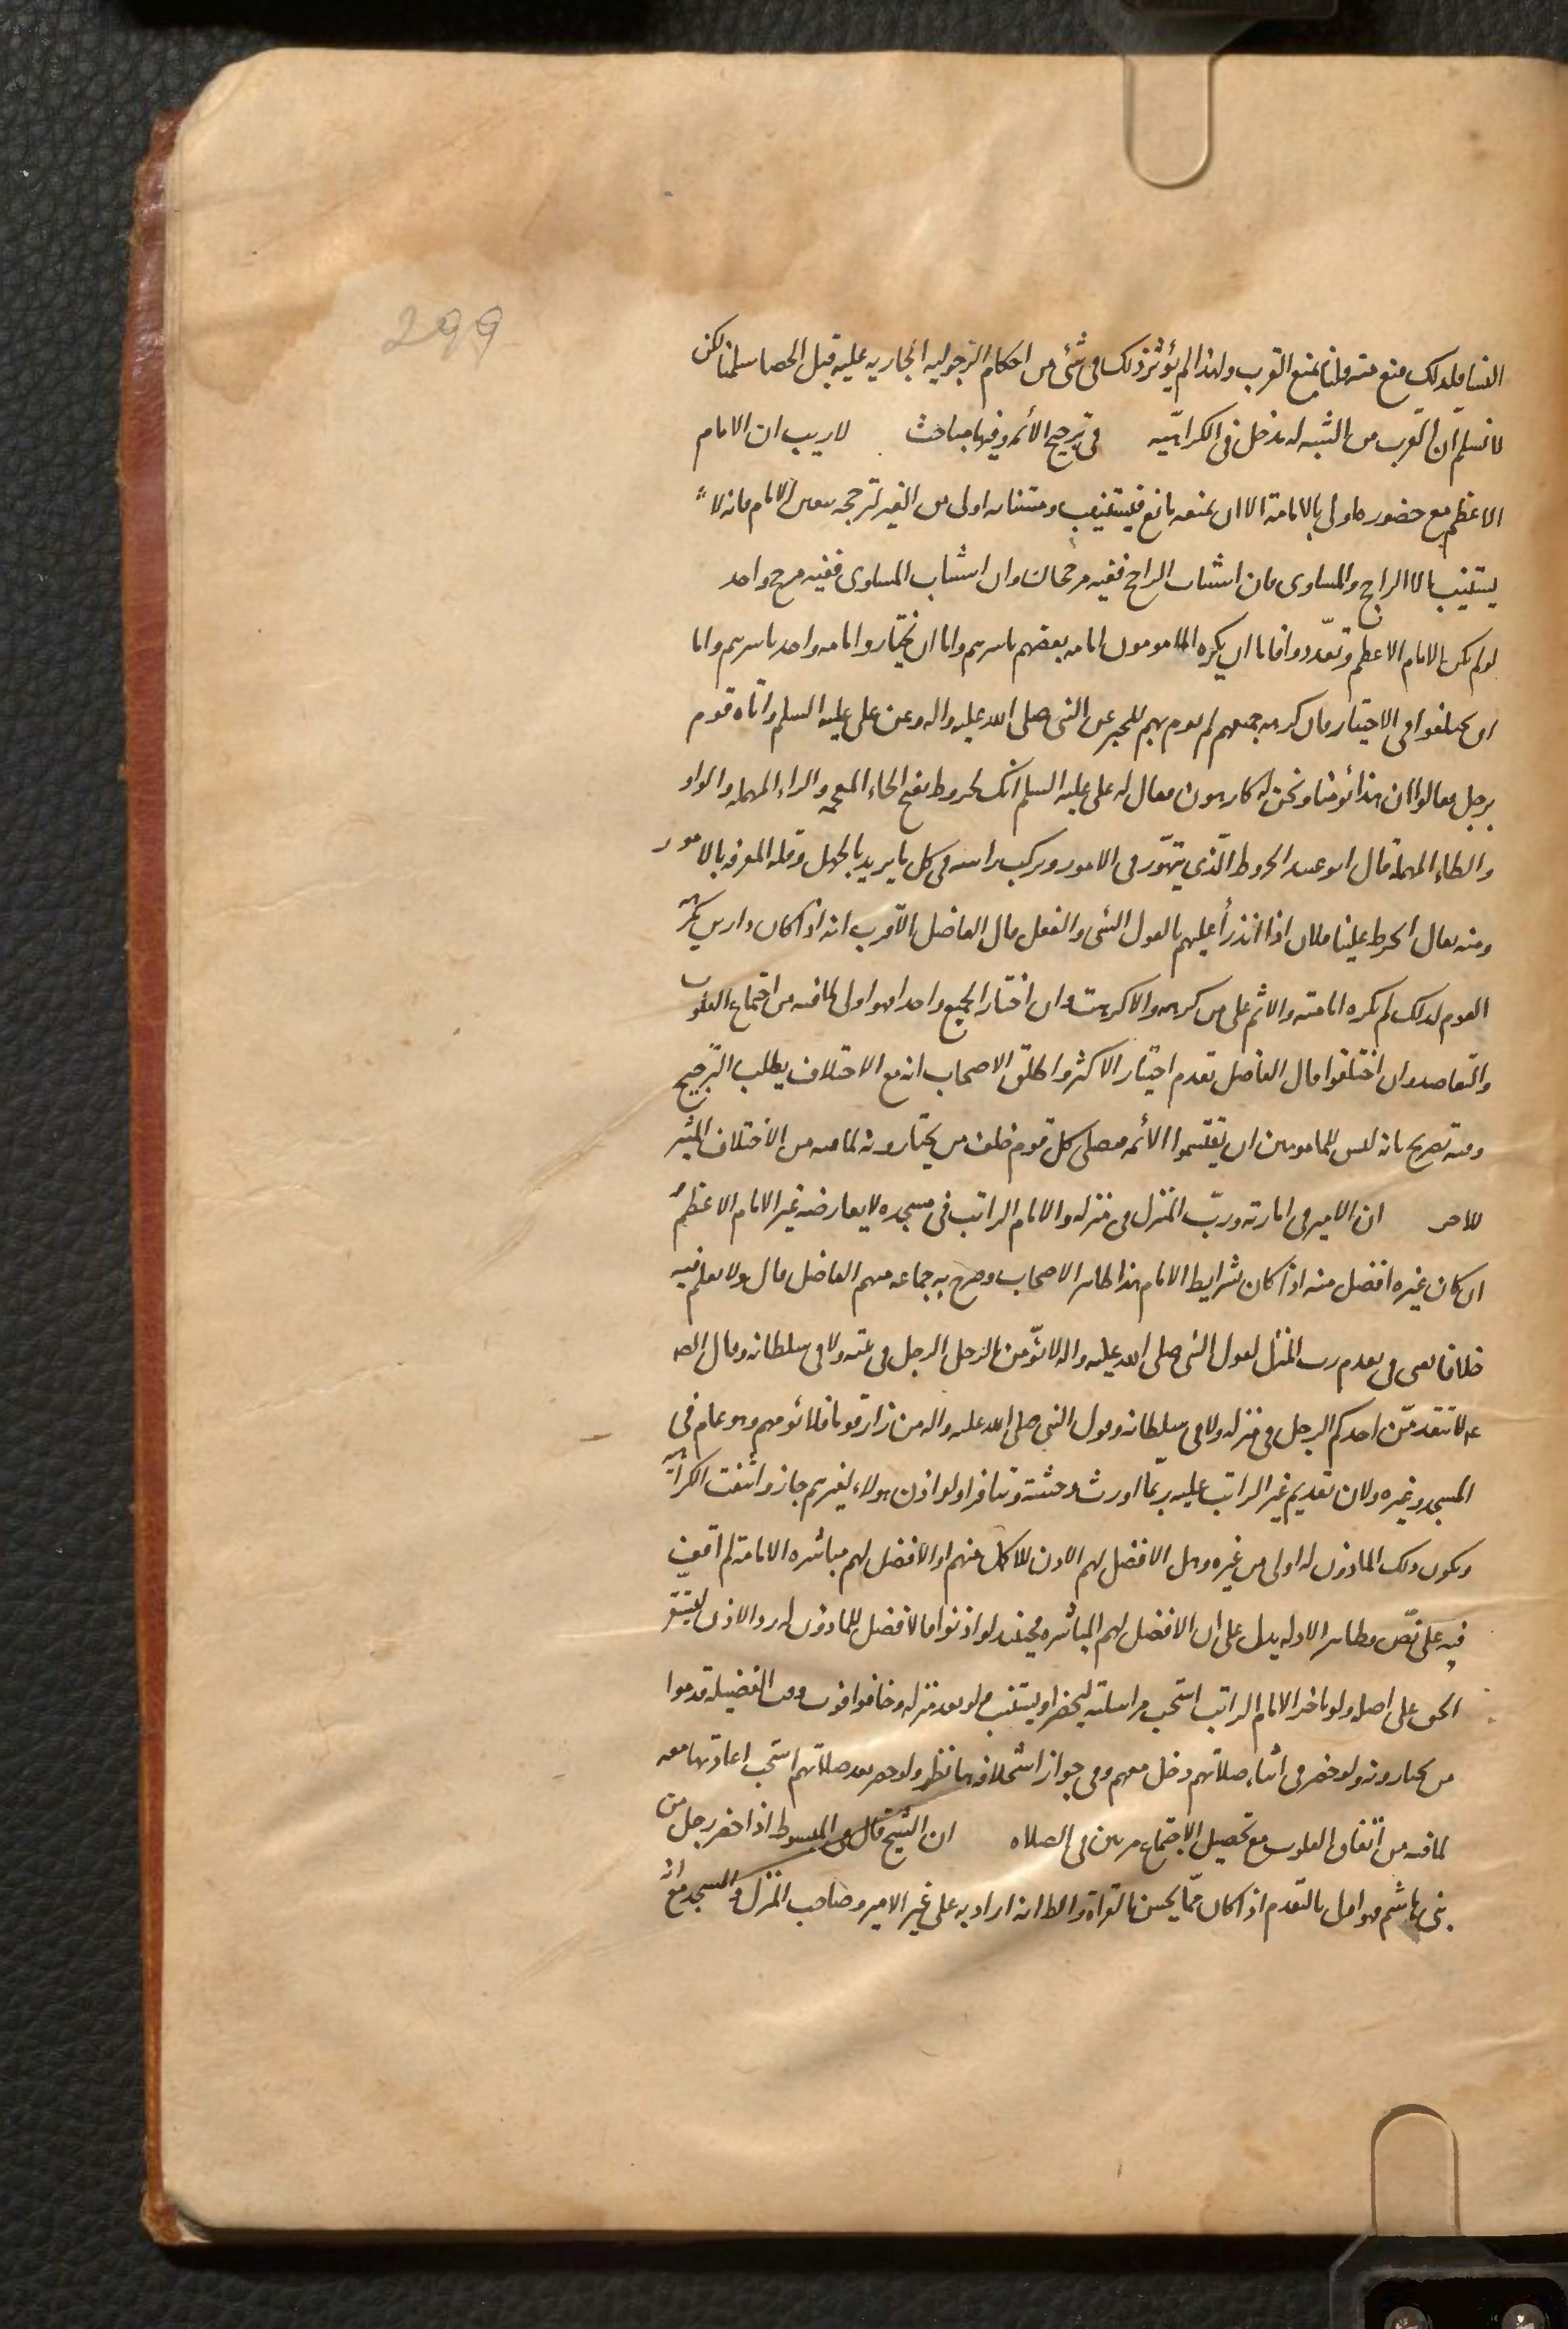 299
النسا فلذلك منع منه قلنا نمنع القرب ولهذا لم يؤثر ذلك فى شئ من احكام الرجوليه الجاريه عليه قبل الخصا سلمنا لكن
لا نسلم ان القرب من الشبه له مدخل فى الكراهيه فى ترجيح الأئمه وفيها مباحث لا ريب ان الامام
الاعظم مع حضوره اولى بالامامة الا ان يمنعه مانع فيستنيب ومستنابه اولى من الغير لترجحه بتعيين الامام فانه لا
يستنيب الا الراجح والمساوى فان استناب الراجح ففيه مرجحان وان استناب المساوى ففيه مرجح واحد
لو لم يكن الامام الاعظم وتعددوا فاما ان يكره المامومون امامه بعضهم باسرهم واما ان يختاروا امامه واحد باسرهم واما
ان يختلفوا فى الاختيار فان كرهه جميعهم لم يؤم بهم للخبر عن النبى صلى الله عليه واله وعن على عليه السلم واتاه قوم
برجل فقالوا ان هذا يؤمنا ونحن له كارهون فقال له على عليه السلم انك لخروط بفتح الخاء المعجمه والراء المهمله والواو
والطاء المهملة قال ابو عبيد الخروط الذى يتهور فى الامور ويركب راسه فى كل ما يريد بالجهل وقله المعرفه بالامور
ومنه يقال انخرط علينا فلان اذا اندرأ عليهم بالقول السئ والفعل قال الفاضل الاقرب انه اذا كان ذا دين يكرهه
القوم لذلك لم تكره امامته والاثم على من كرهه والا كرهت وان اختار الجميع واحدا فهو اولى لما فيه من اجتماع القلوب
والتعاضد وان اختلفوا قال الفاضل تقدم اختيار الاكثر واطلق الاصحاب انه مع الاختلاف يطلب الترجيح
وفيه تصريح بانه ليس للمامومين ان يقتسموا الأئمه فيصلى كل قوم خلف من يختارونه لما فيه من الاختلاف المثير
للاحن ان الامير فى امارته ورب المنزل فى منزله والامام الراتب فى مسجده لا يعارضه غير الامام الاعظم
ان كان غيره افضل منه اذا كان بشرايط الامام هذا ظاهر الاصحاب وصرح به جماعه منهم الفاضل قال ولا نعلم فيه
خلافا يعنى فى تقدم رب المنزل لقول النبى صلى الله عليه واله لا يؤمن الرجل الرجل فى بيته ولا فى سلطانه وقال الصه
عه لا يتقدمن احدكم الرجل فى منزله ولا فى سلطانه وقول النبى صلى الله عليه واله من زار قوما فلا يؤمهم وهو عام فى
المسجد وغيره ولان تقديم غير الراتب عليه ربما اورث وحشة وتنافرا ولو اذن هولاء لغيرهم جاز وانتفت الكراهيه
ويكون ذلك الماذون له اولى من غيره وهل الافضل لهم الاذن للاكمل منهم او الافضل لهم مباشره الامامة لم اقف
فيه على نص وظاهر الادله يدل على ان الافضل لهم المباشره فحينئذ لو اذنوا فالافضل للماذون له رد الاذن ليستقر
الحق على اصله ولو تاخر الامام الراتب استحب مراسلته ليحضر او يستنيب ولو بعد منزله وخافوا فوت وقت الفضيله قدموا
من يختارونه ولو حضر فى اثناء صلاتهم دخل معهم وفى جواز استخلافه هنا نظر ولو حضر بعد صلاتهم استحب اعادتها معه
لما فيه من اتفاق القلوب مع تحصيل الاجتماع مرتين فى الصلاه ان الشيخ قال فى المبسوط اذا حضر رجل من
بنى هاشم فهو اولى بالتقدم اذا كان ممن يحسن القراة والظ انه اراد به على غير الامير وصاحب المنزل والمسجد مع انه